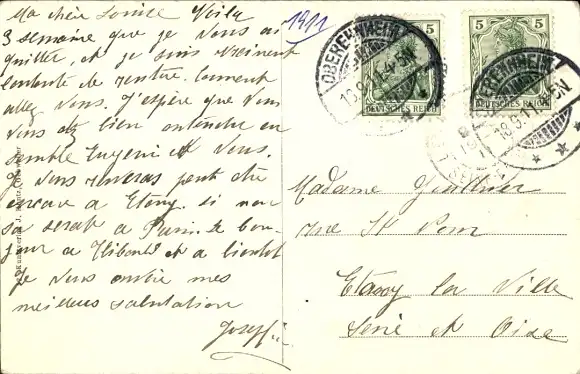 Ma chère Louise Voila
3 semaine que je vous ai
quitter et je suis vraiment
contente de rentré. Comment
allez vous. J'espère que vous
vous etz bien entendue en
semble Eugeni et vous.
Je vous reverai peut etre
encore a Etavy. si non
sa serat a Paris. le bon
jour a et a bientot
je vous envoie mes
meilleus salutation
Joseffi
1911
5
5
DEUTSCHES REICH
DEUTSCHES REICH
OBEREHNHEIM
OBEREHNHEIM
Madame
rue St
Etavy la Ville
Seine et Oise